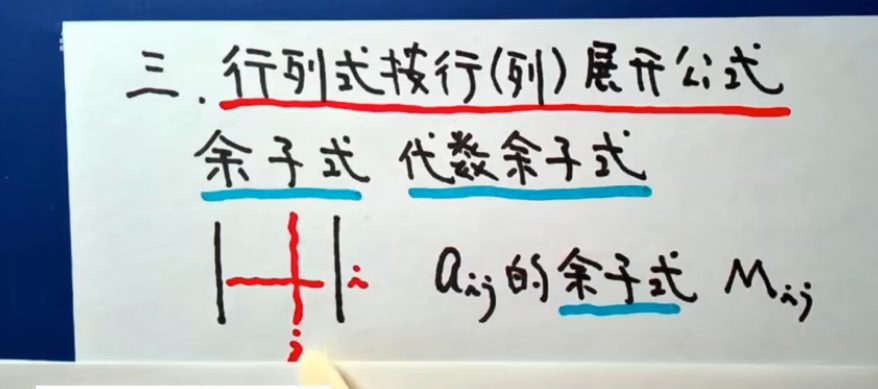 三. 行列式按行(列)展开公式
余子式 代数余子式
i aij的余子式 Mij
j